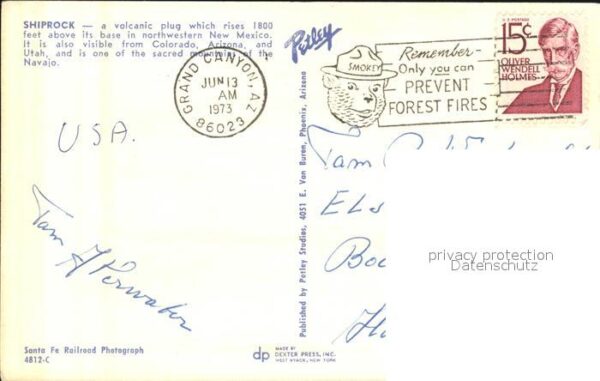 SHIPROCK — a volcanic plug which rises 1800
feet above its base in northwestern New Mexico.
It is also visible from Colorado, Arizona, and
Utah, and is one of the sacred mountains of the
Navajo.
Petley
GRAND CANYON, AZ
JUN 13
AM
1973
86023
SMOKEY
Remember-
Only you can
PREVENT
FOREST FIRES
U.S. POSTAGE
15¢
OLIVER
WENDELL
HOLMES
USA.
Fam
Fam
Published by Petley Studios, 4051 E. Van Buren, Phoenix, Arizona
privacy protection
Datenschutz
Santa Fe Railroad Photograph
4812-C
dp
MADE BY
DEXTER PRESS, INC.
WEST NYACK, NEW YORK